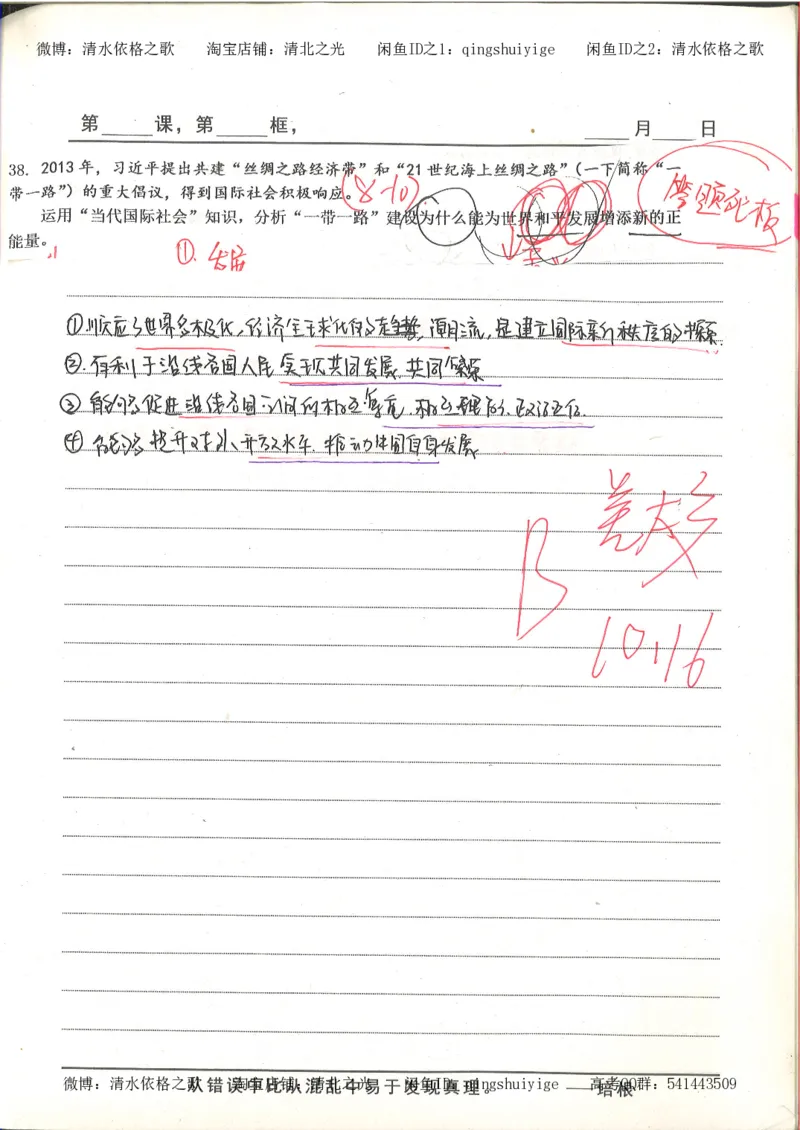 微博：清水依格之歌 淘宝店铺：清北之光 闲鱼ID之1：qingshuiyige 闲鱼ID之2：清水依格之歌
第____课，第____框， ____月____日
38. 2013年，习近平提出共建“丝绸之路经济带”和“21世纪海上丝绸之路”（一下简称“一
带一路”）的重大倡议，得到国际社会积极响应。(8-10)
答题死板
运用“当代国际社会”知识，分析“一带一路”建设为什么能为世界和平发展增添新的正
能量。
①
①顺应了世界多极化，经济全球化的走势，潮流，是建立国际新秩序的探索.
②.有利于沿线各国人民实现共同发展、共同繁荣
③能够促进沿线各国之间的相互尊重，相互理解，政治互信.
④能够提升对外开放水平，推动我国自身发展
B
10.16
微博：清水依格之歌 淘宝店铺：清北之光 闲鱼ID：qingshuiyige 高考QQ群：541443509
从错误中比从混乱中易于发现真理。 ——培根